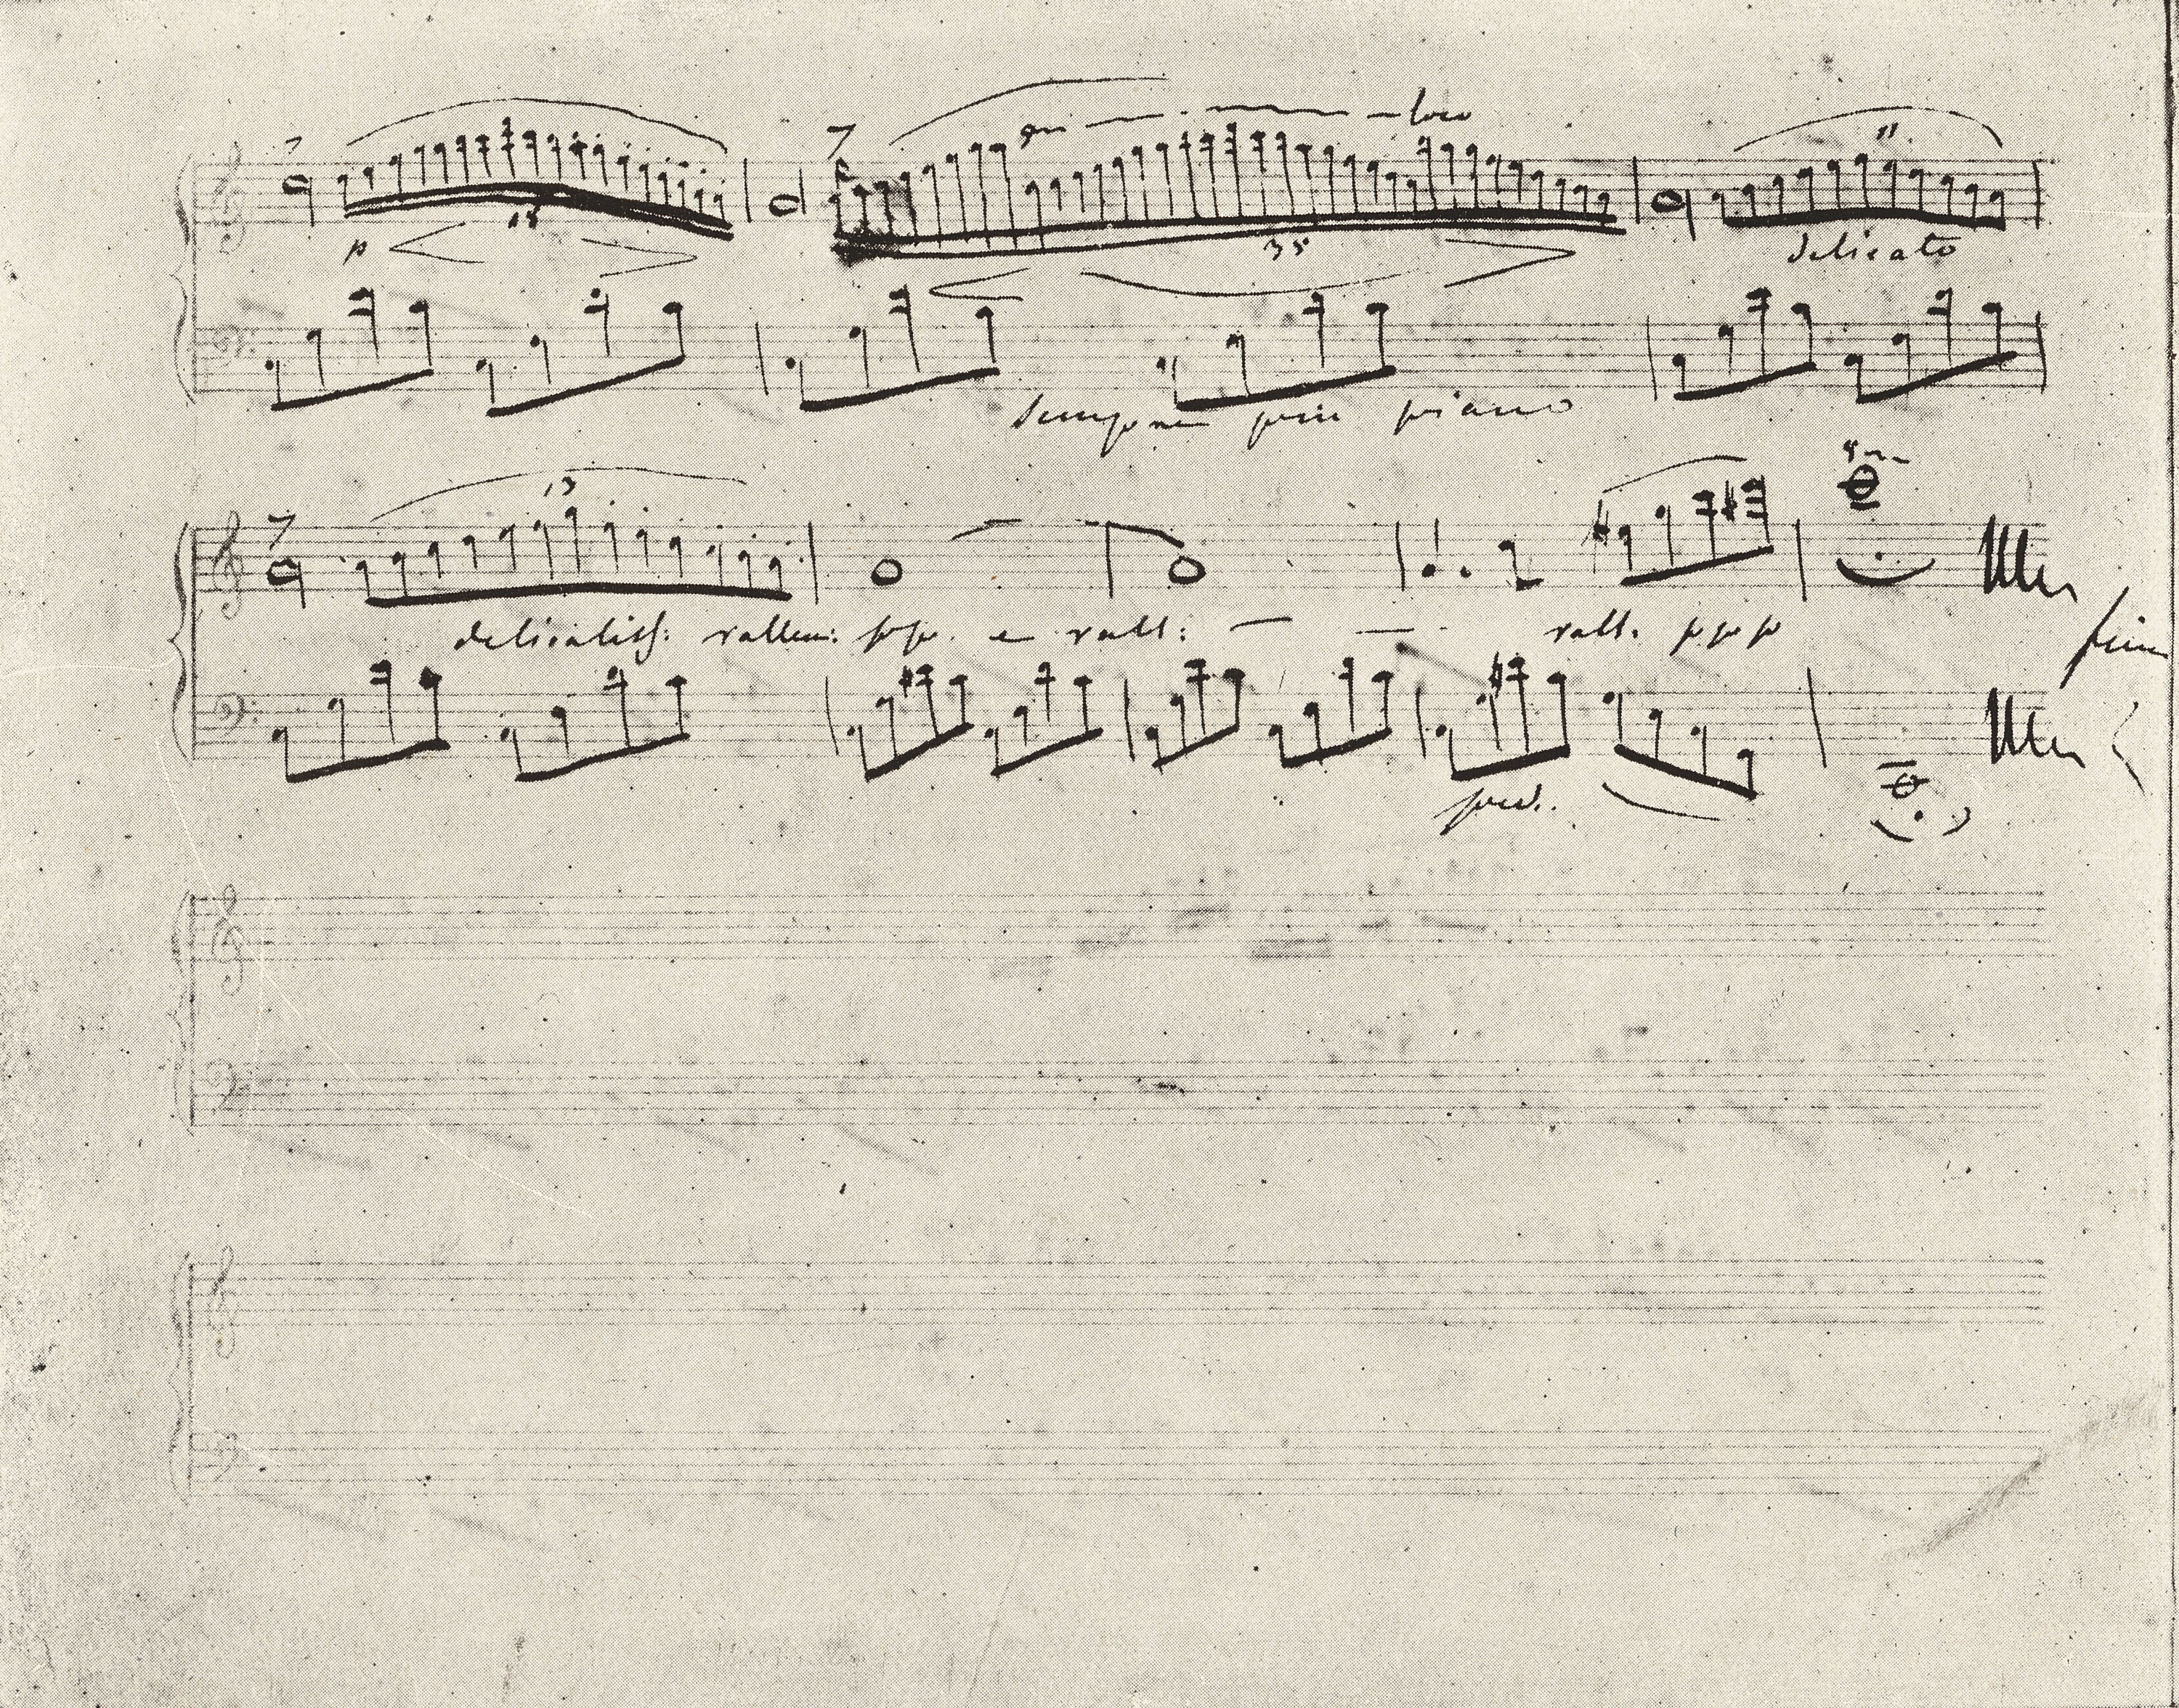 loco
18
35
11
delicato
sempre piu piano
13
8
delicatiss: rallen: pp. e rall: rall. ppp
fine
ped.